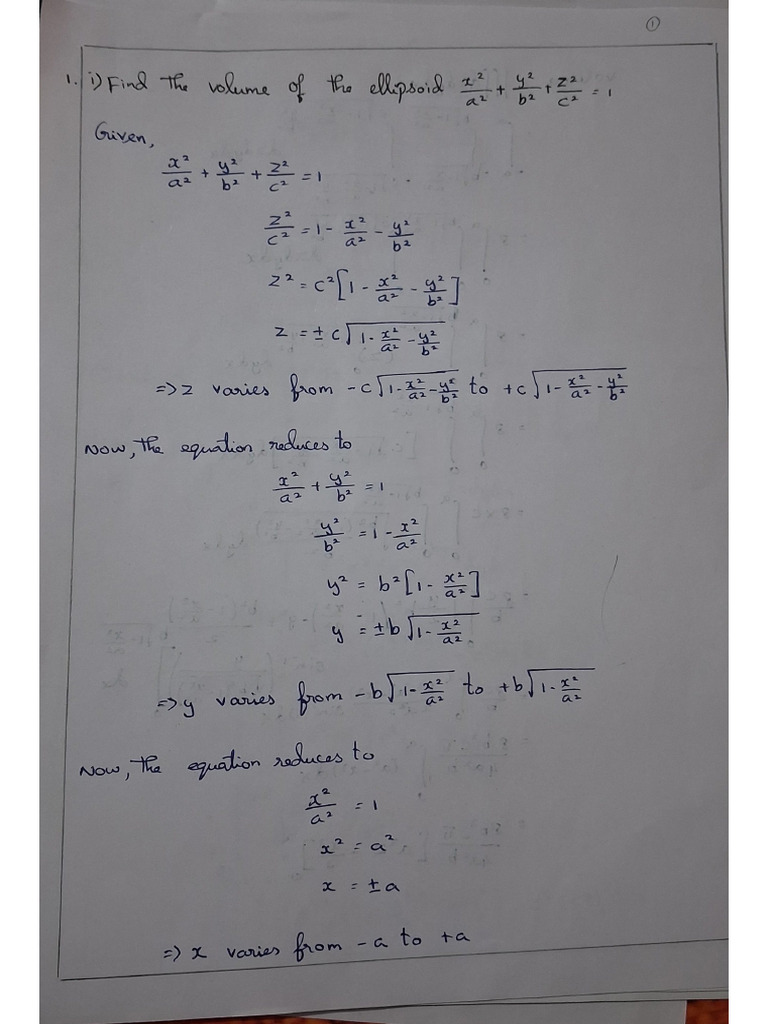 ①
1. i) Find The volume of the ellipsoid x²/a² + y²/b² + z²/c² = 1
Given,
x²/a² + y²/b² + z²/c² = 1
z²/c² = 1 - x²/a² - y²/b²
z² = c²[1 - x²/a² - y²/b²]
z = ± c√(1 - x²/a² - y²/b²)
=> z varies from -c√(1 - x²/a² - y²/b²) to +c√(1 - x²/a² - y²/b²)
Now, The equation reduces to
x²/a² + y²/b² = 1
y²/b² = 1 - x²/a²
y² = b²[1 - x²/a²]
y = ±b√(1 - x²/a²)
=> y varies from -b√(1 - x²/a²) to +b√(1 - x²/a²)
Now, The equation reduces to
x²/a² = 1
x² = a²
x = ±a
=> x varies from -a to +a